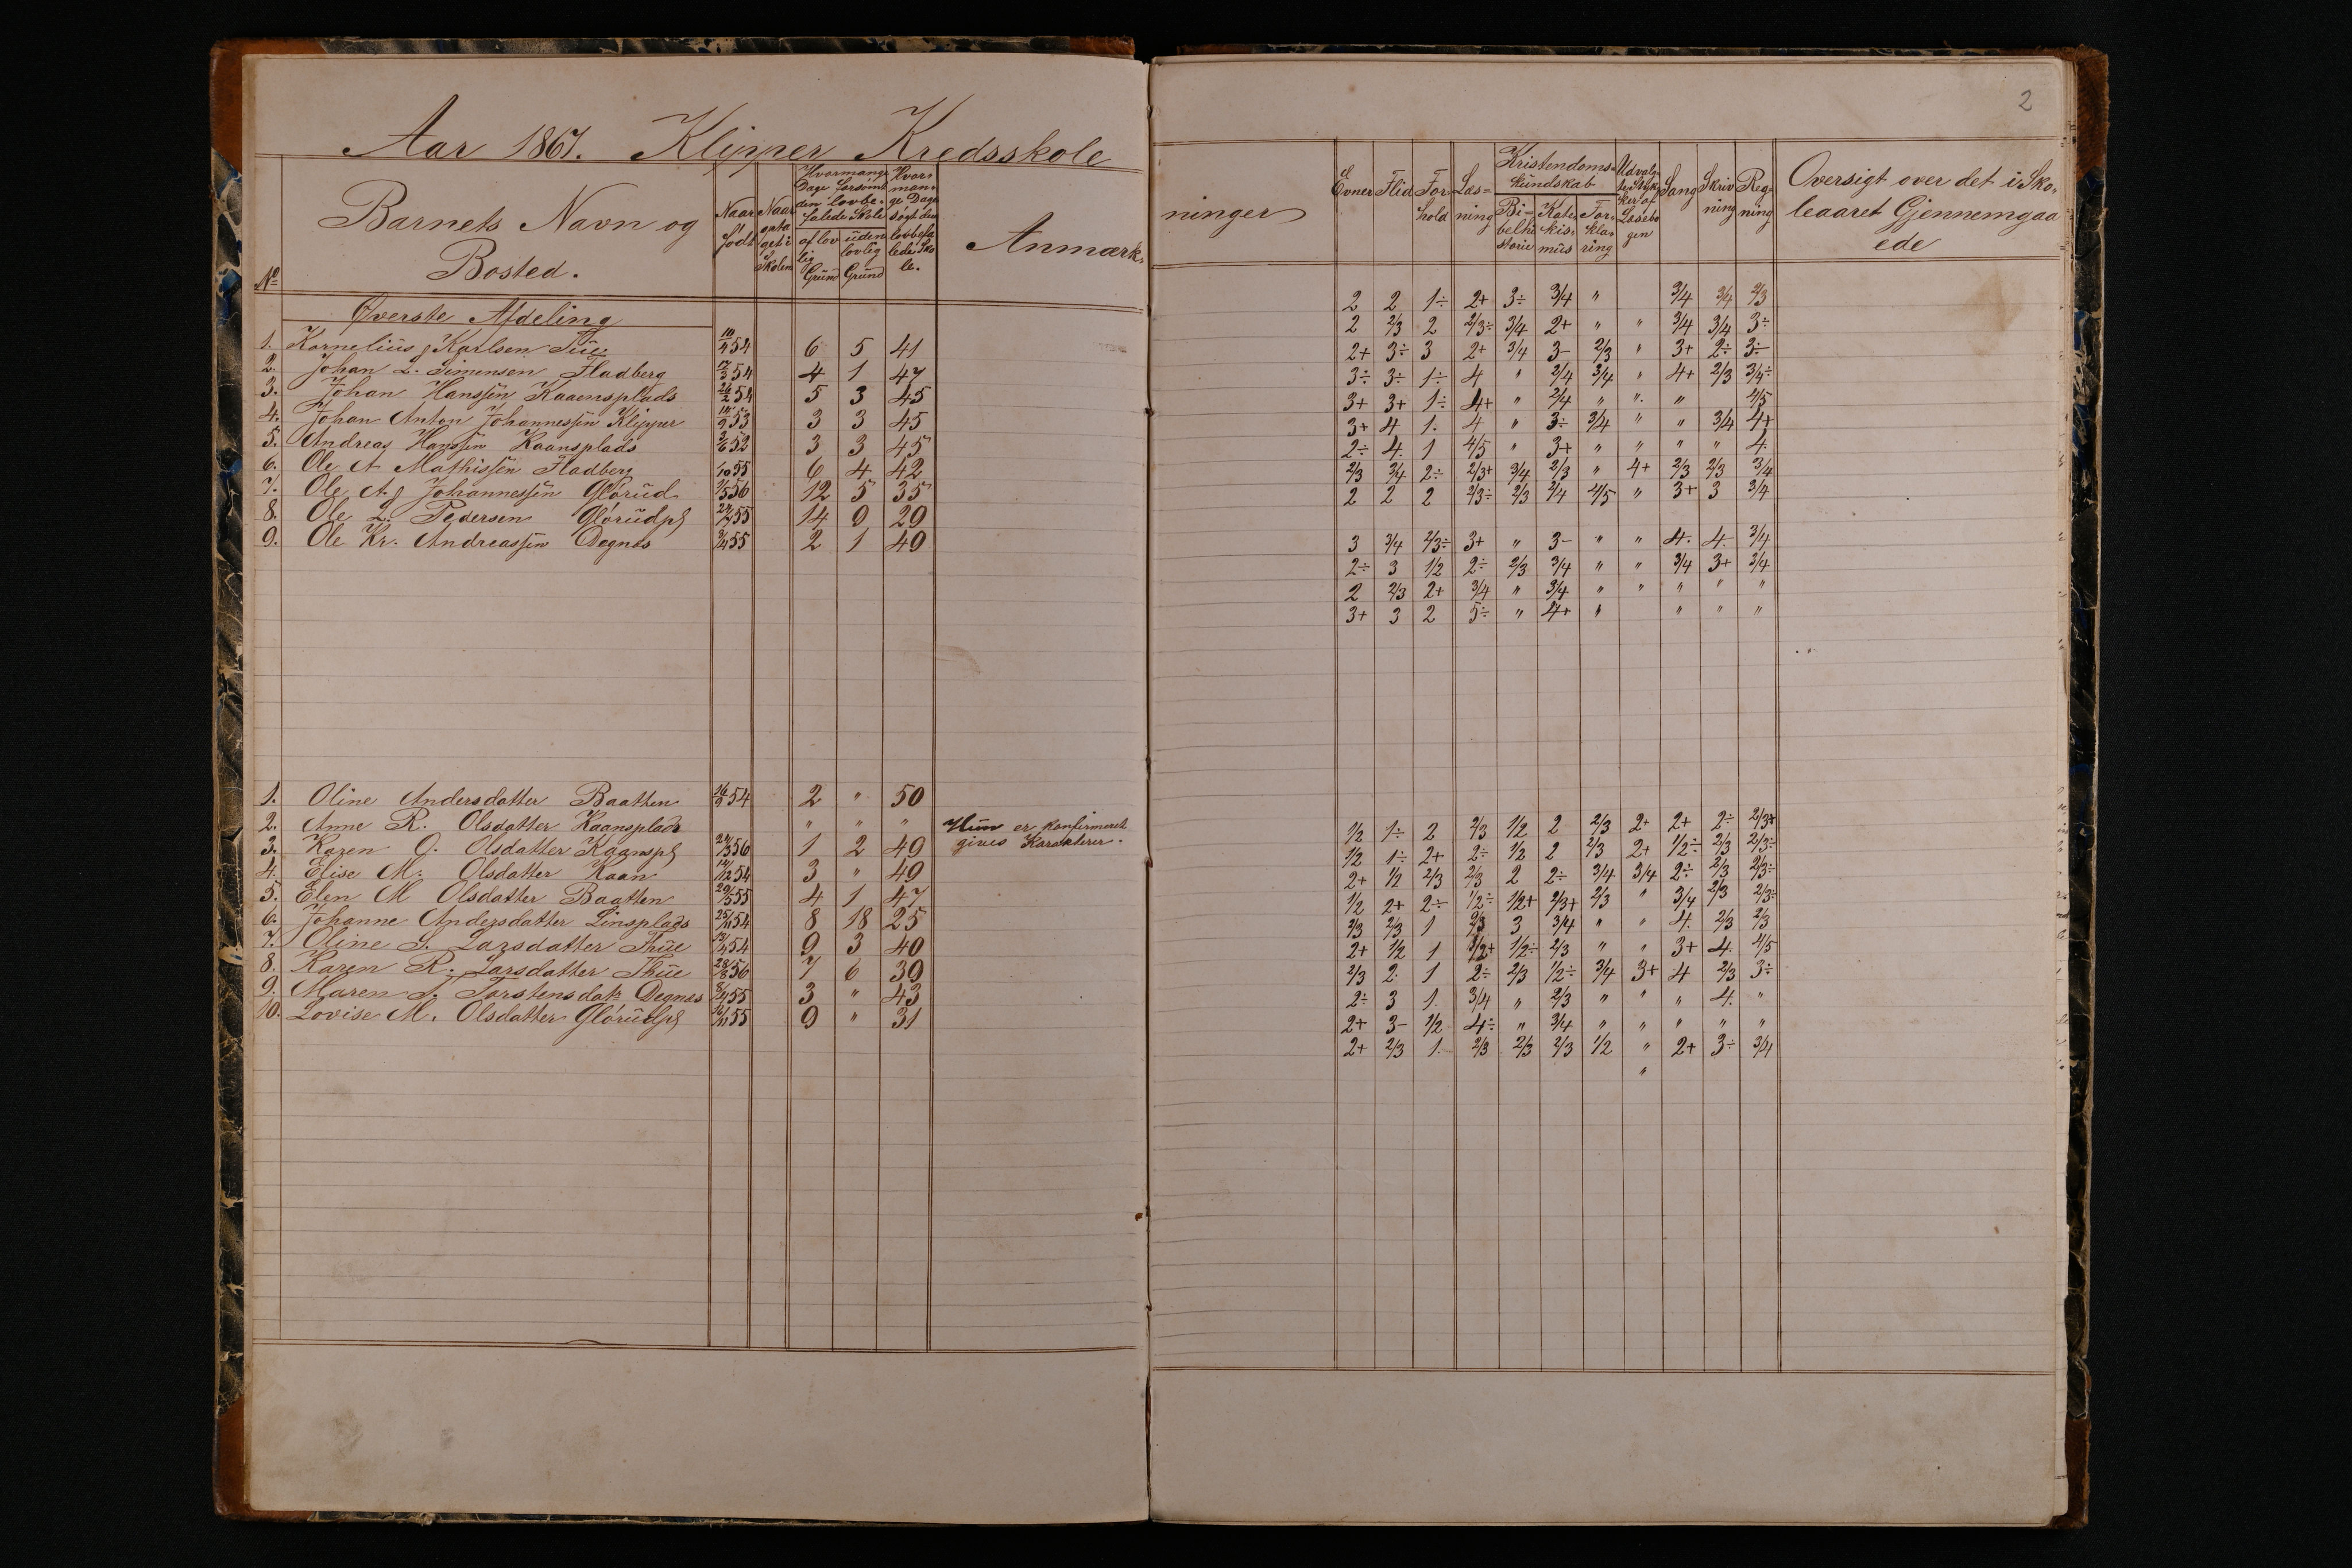 2
Aar 1867. Klipper Kredsskole
No
Barnets Navn og
Bosted.
Naar
født
Naar
opta
get i
Skolen
Hvormange
Dage forsømt
den lovbe-
falede Skole
af lov
lig
Grund
uden
lovlig
Grund
Hvor
man-
ge Dage
søgt den
lovbefa
lede Sko
le.
Anmærk-
ninger
Evner
Flid
For-
hold
Læs=
ning
Kristendoms-
kundskab
Bi-
belhi
storie
Kate-
kis-
mus
For-
klar
ring
Udvalg-
te Styk-
ker af
Læsebo
gen
Sang
Skriv
ning
Reg-
ning
Oversigt over det i Sko-
leaaret Gjennemgaa
ede
Øverste Afdeling
1. Kornelius J Karlsen Tue 54 6 5 41
2. Johan L. Simensen Fladberg 54 4 1 47
3. Johan Hanssen Kaaensplads 26/2 54 5 3 45
4. Johan Anton Johannessen Klipper 53 3 3 45
5. Andreas Hanssen Kaansplads 52 3 3 45
6. Ole A Mathissen Fladberg 55 6 4 42
7. Ole A J Johannessen Glórud 56 12 5 35
8. Ole L. Pedersen Glórudpl 55 14 9 29
9. Ole Kr. Andreassen Degnes 55 2 1 49
1. Oline Andersdatter Baatten 54 2 " 50
2. Anne R. Olsdatter Kaansplads " " " Hun er konfirmeret
gives Karakterer.
3. Karen G. Olsdatter Kaanspl 56 1 2 49
4. Elise M. Olsdatter Kaan 54 3 " 49
5. Elen M Olsdatter Baatten 55 4 1 47
6. Johanne Andersdatter Linsplads 54 8 18 25
7. Oline S. Larsdatter Thue 54 9 3 40
8. Karen R. Larsdatter Thue 56 7 6 39
9. Maren S. Torstensdatr Degnes 55 3 " 43
10. Lovise M. Olsdatter Glórudpl 55 9 " 31
2 2 1÷ 2+ 3÷ 3/4 " 3/4 3/4 2/3
2 2/3 2 2/3÷ 3/4 2+ " " 3/4 3/4 3÷
2+ 3÷ 3 2+ 3/4 3- 2/3 " 3+ 2÷ 3÷
3÷ 3÷ 1÷ 4 " 2/4 3/4 " 4+ 2/3 3/4÷
3+ 3+ 1÷ 4+ " 2/4 " " " 4/5
3+ 4 1. 4 " 3÷ 3/4 " " 3/4 4+
2÷ 4. 1 4/5 " 3+ " " " " 4.
2/3 3/4 2÷ 2/3+ 3/4 2/3 " 4+ 2/3 2/3 3/4
2 2 2 2/3÷ 2/3 2/4 4/5 " 3+ 3 3/4
3 3/4 2/3÷ 3+ " 3- " " 4. 4. 3/4
2÷ 3 1/2 2÷ 2/3 3/4 " " 3/4 3+ 3/4
2 2/3 2+ 3/4 " 3/4 " " " " "
3+ 3 2 5÷ " 4+ " " " "
1/2 1÷ 2 2/3 1/2 2 2/3 2+ 2+ 2÷ 2/3+
1/2 1÷ 2+ 2÷ 1/2 2 2/3 2+ 1/2÷ 2/3 2/3÷
2+ 1/2 2/3 2/3 2 2÷ 3/4 3/4 2÷ 2/3 2/3÷
1/2 2+ 2÷ 1/2÷ 1/2+ 2/3+ 2/3 " 3/4 2/3 2/3÷
2/3 2/3 1 2/3 3 3/4 " " 4. 2/3 2/3
2+ 1/2 1 1/2+ 1/2÷ 2/3 " " 3+ 4. 4/5
2/3 2. 1 2÷ 2/3 1/2÷ 3/4 3+ 4 2/3 3÷
2÷ 3 1. 3/4 " 2/3 " " " 4. "
2+ 3- 1/2 4÷ " 3/4 " " " " "
2+ 2/3 1. 2/3 2/3 2/3 1/2 " 2+ 3÷ 3/4
"